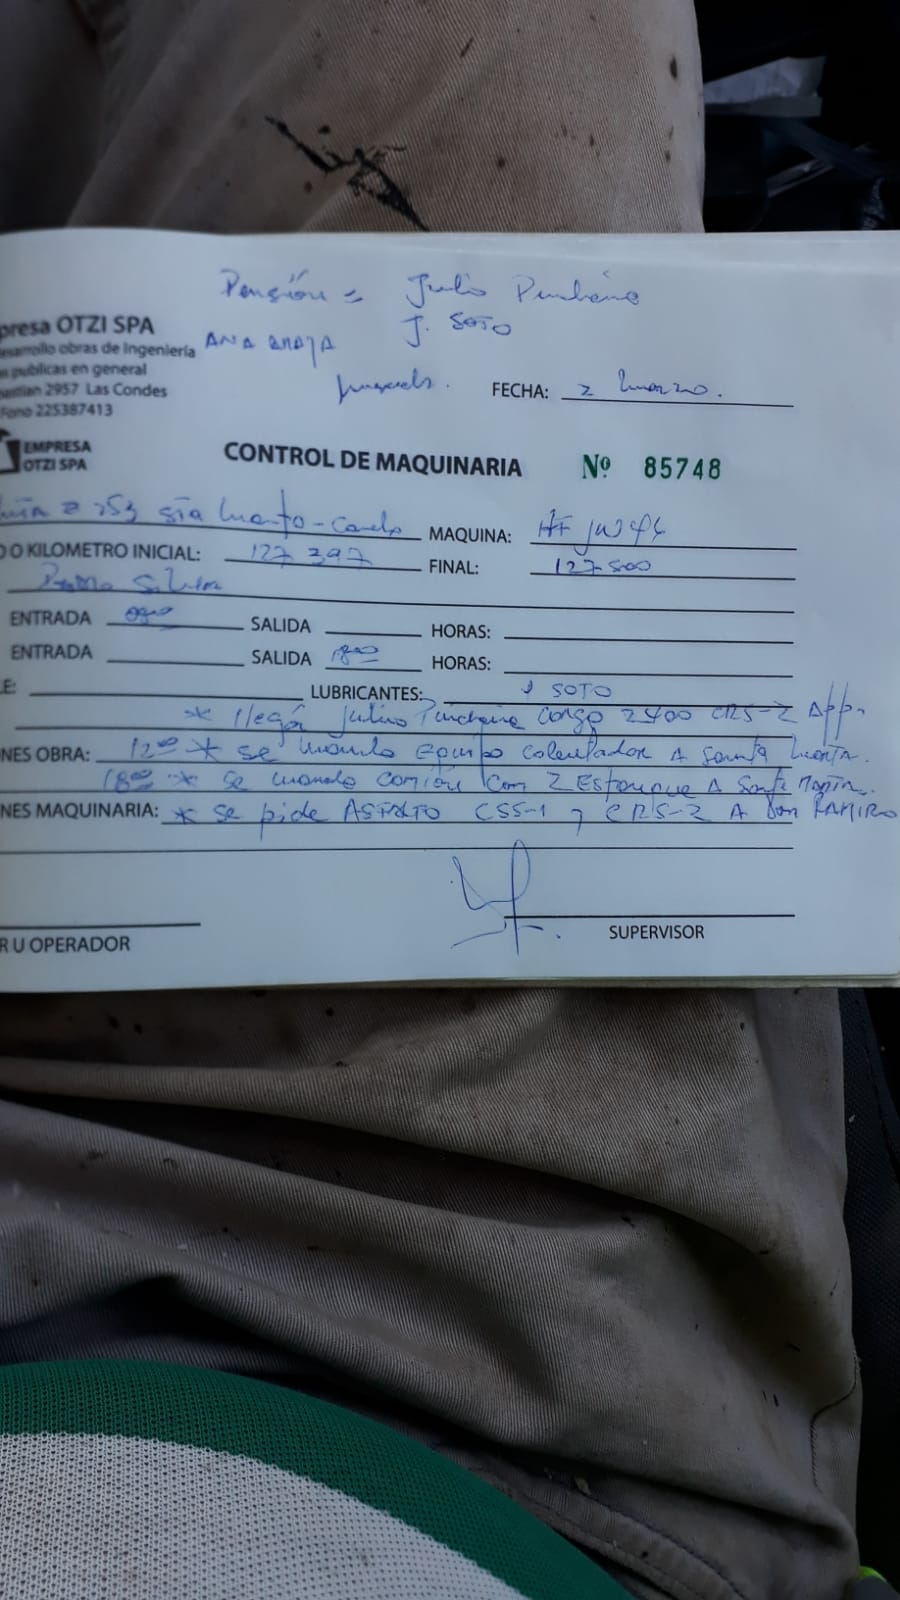 Pensión = Julio
J. SOTO
presa OTZI SPA
ANA
esarrollo obras de Ingeniería
s publicas en general
astian 2957 Las Condes
Fono 225387413
FECHA: 2 Marzo.
EMPRESA
OTZI SPA
CONTROL DE MAQUINARIA Nº 85748
253 Sta
MAQUINA:
O KILOMETRO INICIAL: 127 397
FINAL: 127.500
Silva
ENTRADA SALIDA HORAS:
ENTRADA SALIDA 1800 HORAS:
E: LUBRICANTES: y SOTO
* llegó Julio cargo 2400 CRS-2 App.
NES OBRA: 1200 * se mando Equipo Calentador A Santa Marta.
1800 * se mando camión con 2 Estanque A Santa Marta.
NES MAQUINARIA: * se pide ASFALTO CSS-1 y CRS-2 A Don RAMIRO
R U OPERADOR
SUPERVISOR